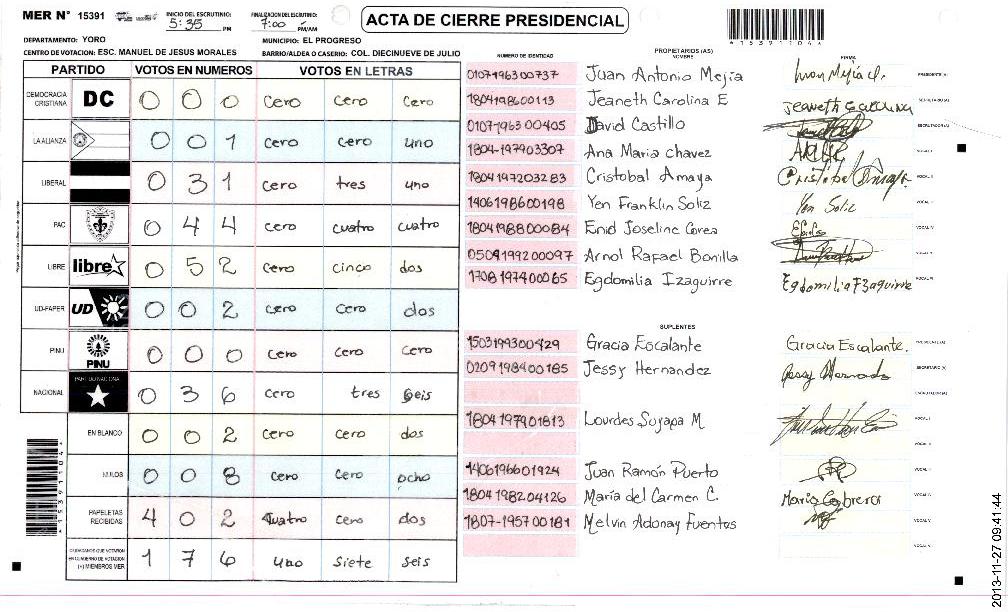 MER N° 15391
INICIO DEL ESCRUTINIO: 5:35 PM
FINALIZACION DEL ESCRUTINIO: 7:00 PM/AM
ACTA DE CIERRE PRESIDENCIAL
15391104
DEPARTAMENTO: YORO
MUNICIPIO: EL PROGRESO
CENTRO DE VOTACION: ESC. MANUEL DE JESUS MORALES
BARRIO/ALDEA O CASERIO: COL. DIECINUEVE DE JULIO
PARTIDO VOTOS EN NUMEROS VOTOS EN LETRAS
DEMOCRACIA CRISTIANA DC 0 0 0 cero cero cero
LA ALIANZA 0 0 1 cero cero uno
LIBERAL 0 3 1 cero tres uno
PAC 0 4 4 cero cuatro cuatro
LIBRE libre 0 5 2 cero cinco dos
UD-FAPER UD 0 0 2 cero cero dos
PINU PINU 0 0 0 cero cero cero
NACIONAL PARTIDO NACIONAL 0 3 6 cero tres seis
EN BLANCO 0 0 2 cero cero dos
NULOS 0 0 8 cero cero ocho
PAPELETAS RECIBIDAS 4 0 2 cuatro cero dos
CIUDADANOS QUE VOTARON EN CUADERNO DE VOTACION (+) MIEMBROS MER 1 7 6 uno siete seis
15391104
NUMERO DE IDENTIDAD PROPIETARIOS (AS) NOMBRE FIRMA
0107196300737 Juan Antonio Mejía Juan Mejia PRESIDENTE (A)
1804198600113 Jeaneth Carolina E Jeaneth Carolina SECRETARIO (A)
0107-1963 00405 David Castillo ESCRUTADOR (A)
1804-197903307 Ana Maria Chavez VOCAL I
1804197203283 Cristobal Amaya Cristobal Amaya VOCAL II
1406198600198 Yen Franklin Soliz Yen Soliz VOCAL III
1804198800084 Enid Joseline Corea VOCAL IV
0504199200097 Arnol Rafael Bonilla VOCAL V
1708197400065 Egdomilia Izaguirre Egdomilia Izaguirre VOCAL VI
SUPLENTES
1503199300429 Gracia Escalante Gracia Escalante. PRESIDENTE (A)
0209198400185 Jessy Hernandez Jessy Hernandez SECRETARIO (A)
ESCRUTADOR (A)
1804197901813 Lourdes Suyapa M VOCAL I
1406196601924 Juan Ramón Puerto
1804198204126 María del Carmen C. Maria Cabrera
1807-195700181 Melvin Adonay Fuentes VOCAL V
VOCAL VI
2013-11-27 09:41:44